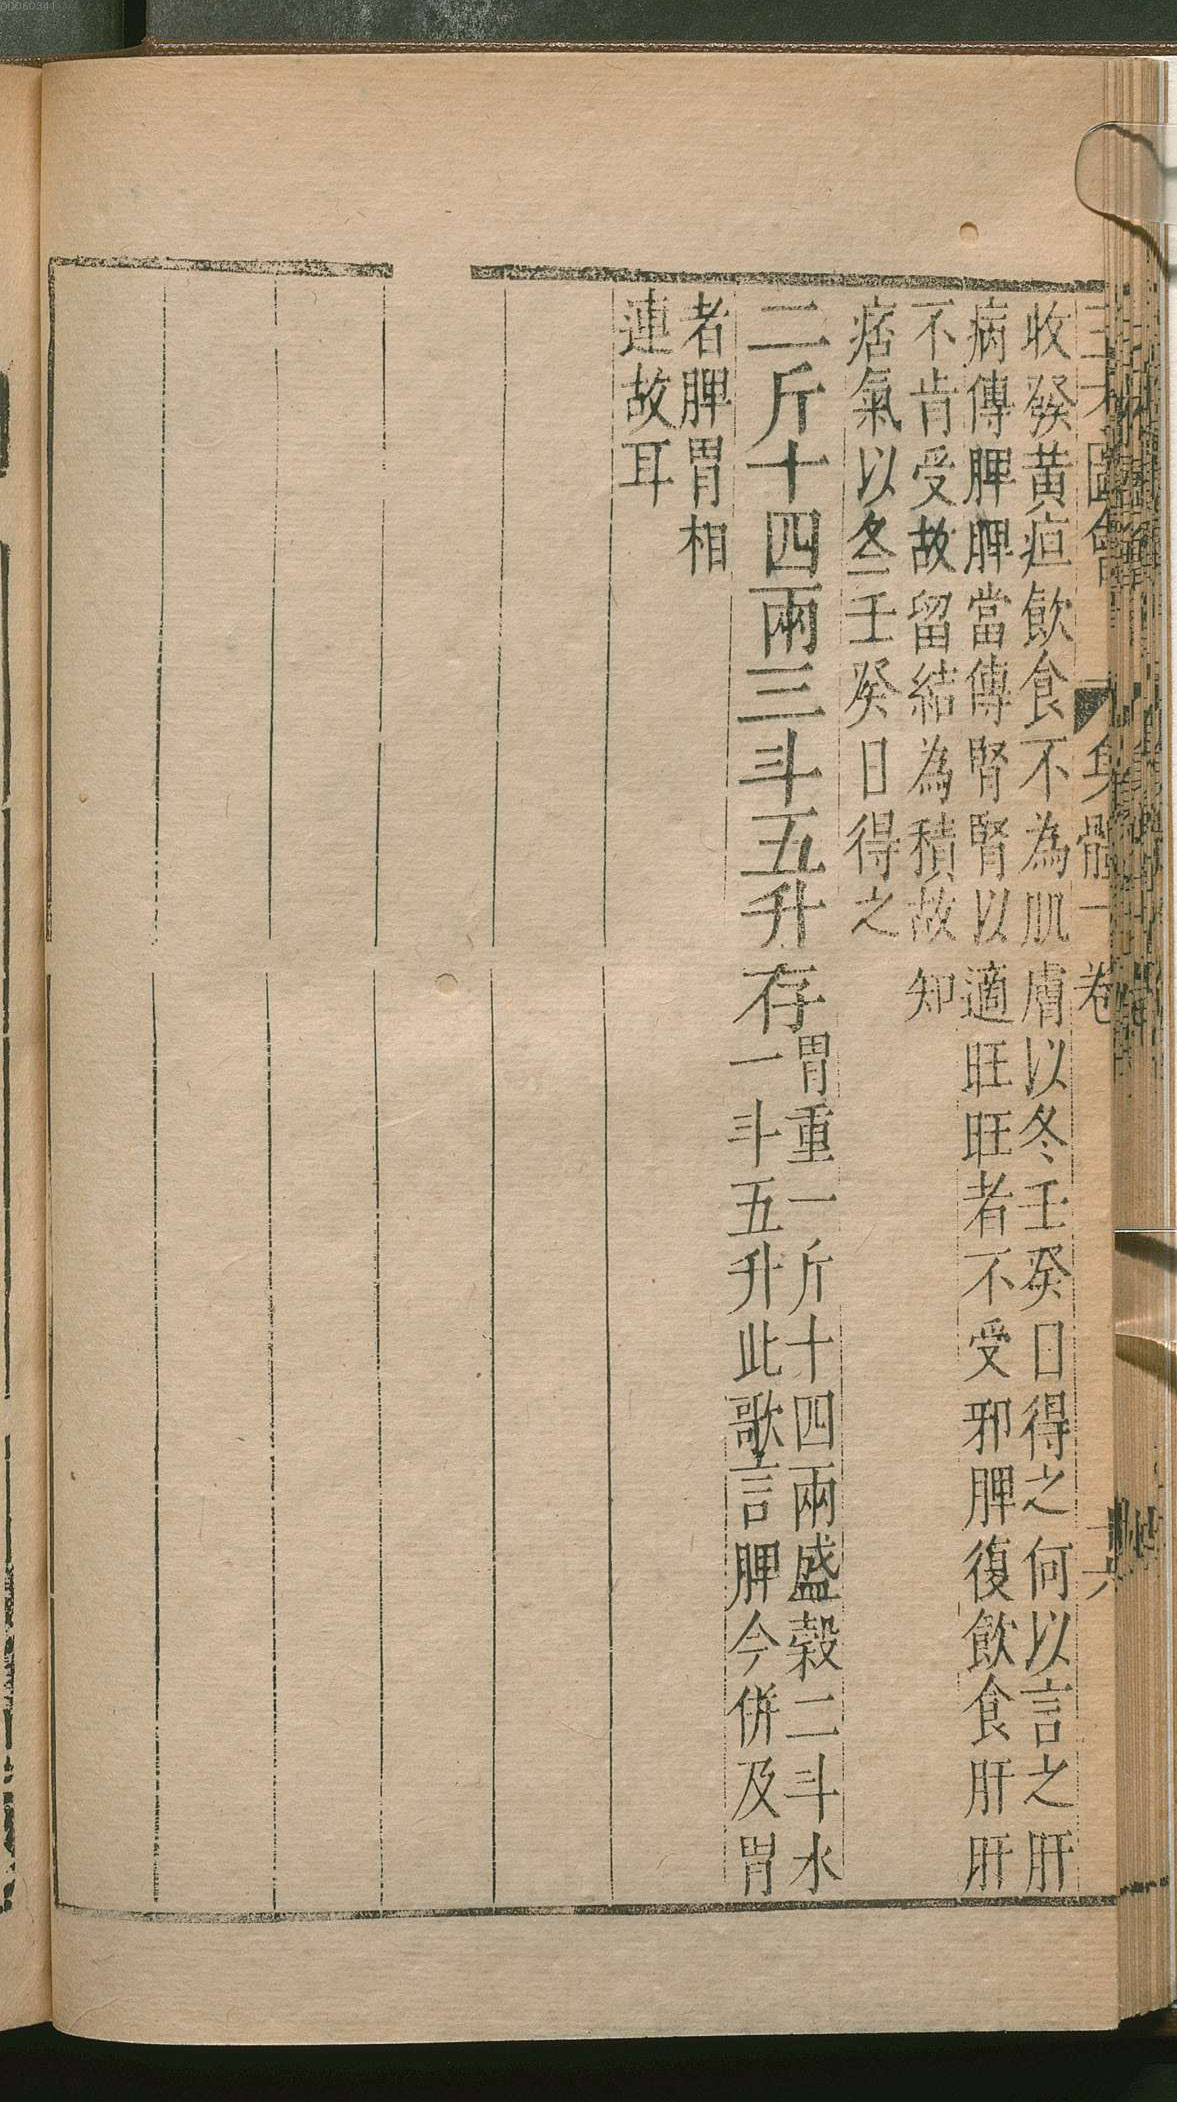 三才圖會 身體一卷 十六
收發黃疸飲食不為肌膚以冬壬癸日得之何以言之肝
病傳脾脾當傳腎腎以適旺旺者不受邪脾復飲食肝肝
不肯受故留結為積故知
痞氣以冬壬癸日得之
二斤十四兩三斗五升存
胃重一斤十四兩盛穀二斗水
一斗五升此歌言脾今併及胃
者脾胃相
連故耳
00060341